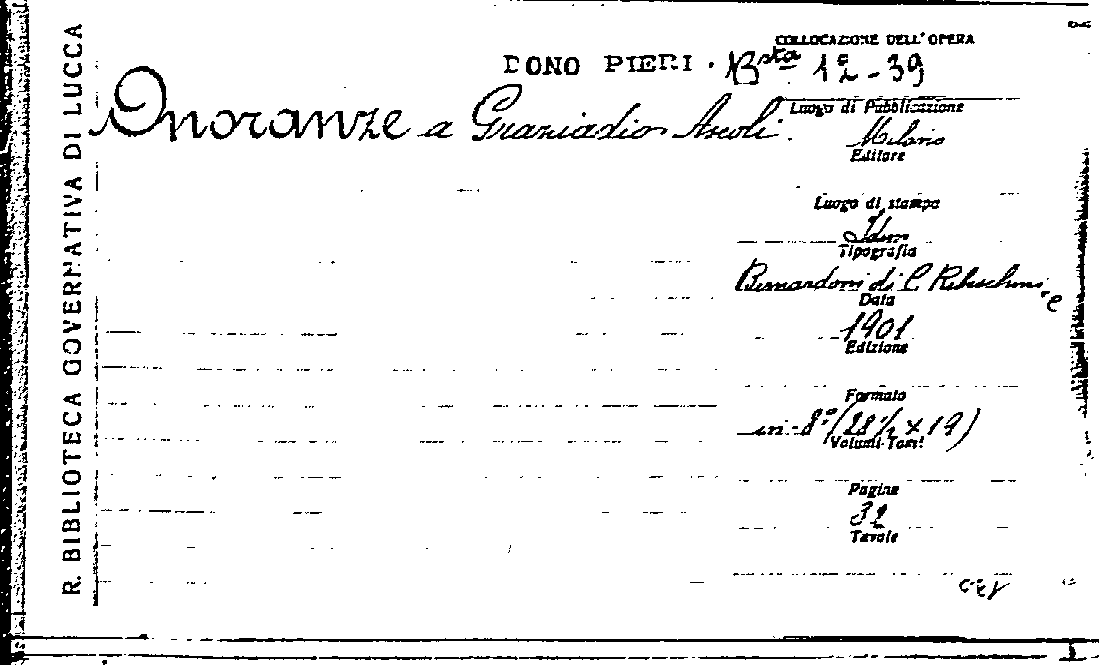 R. BIBLIOTECA GOVERNATIVA DI LUCCA
COLLOCAZIONE DELL'OPERA
DONO PIERI. Bsta 12-39
Onoranze a Graziadio Ascoli.
Luogo di Pubblicazione
Milano
Editore
Luogo di stampa
Idem
Tipografia
Bernardoni di C. Rebeschini e
Data
1901
Edizione
Formato
in-8° (28½ x 19)
Volumi-Tomi
Pagine
32
Tavole